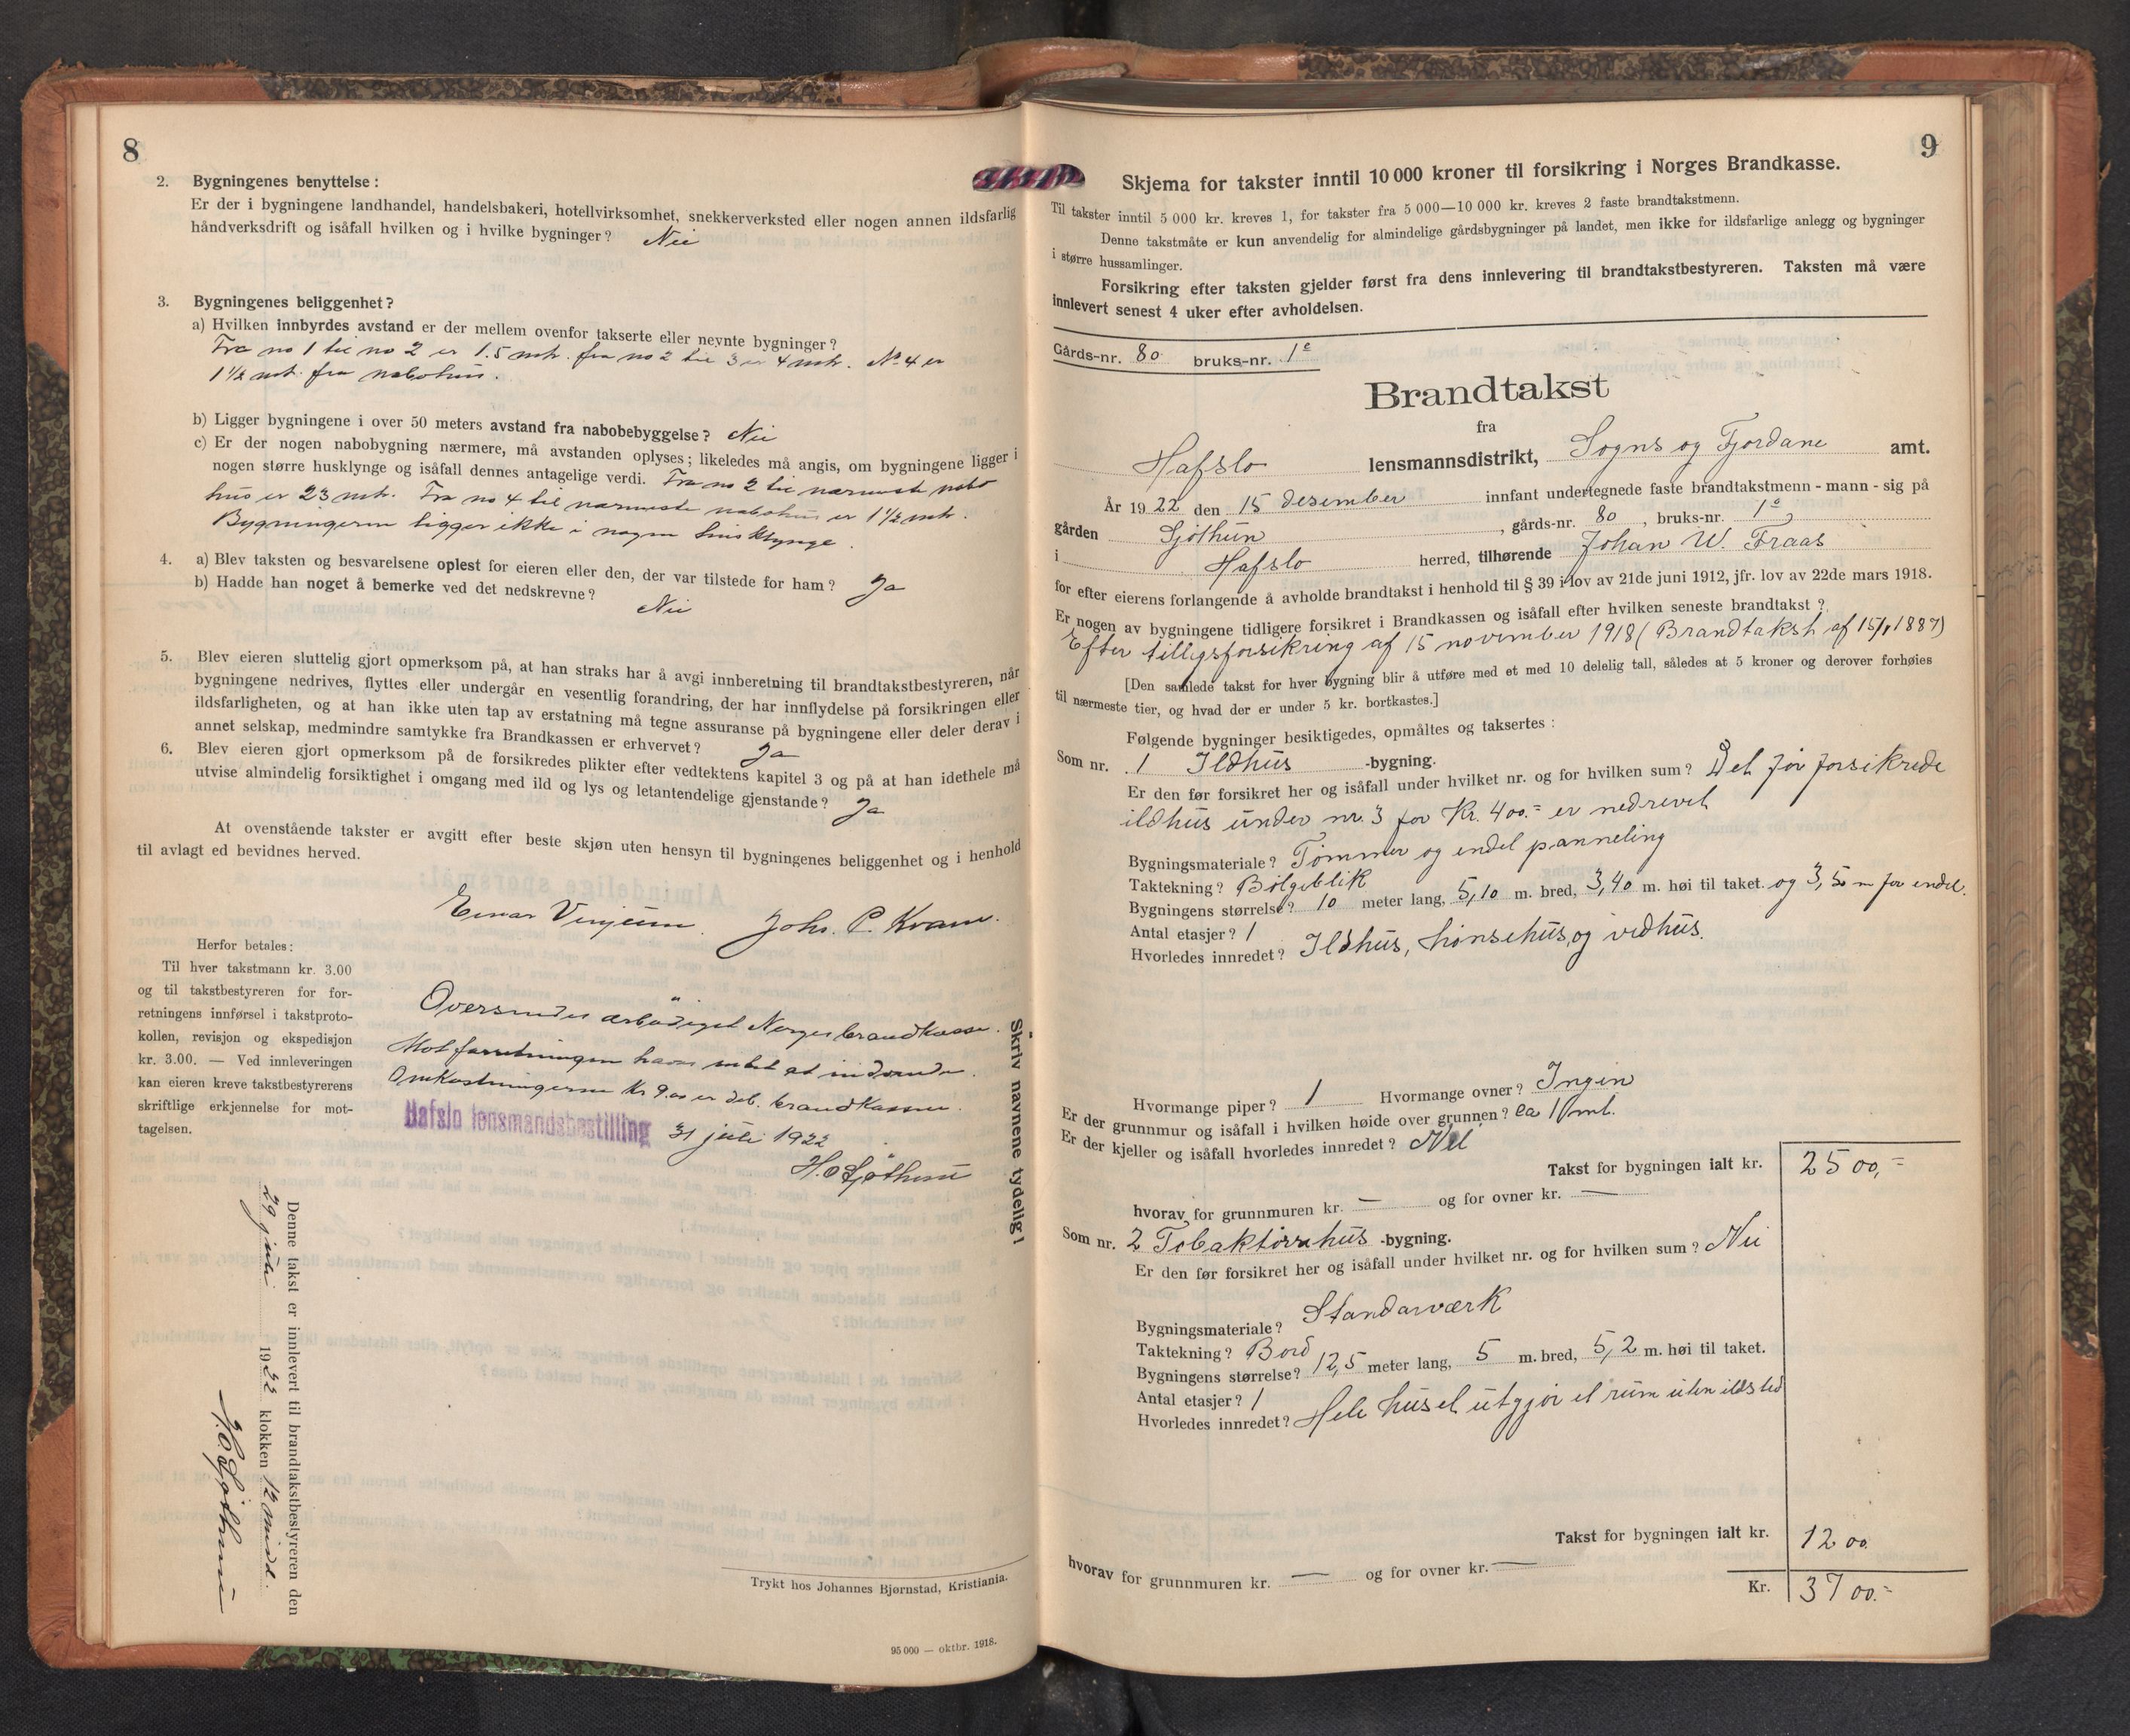 8
2. Bygningenes benyttelse:
Er der i bygningene landhandel, handelsbakeri, hotellvirksomhet, snekkerverksted eller nogen annen ildsfarlig
håndverksdrift og isåfall hvilken og i hvilke bygninger? Nei
3. Bygningenes beliggenhet?
a) Hvilken innbyrdes avstand er der mellem ovenfor takserte eller nevnte bygninger?
Fra no 1 til no 2 er 1.5 mtr. fra no 2 til 3 er 4 mtr. No 4 er
1 1/2 mtr. fra nabohus.
b) Ligger bygningene i over 50 meters avstand fra nabobebyggelse? Nei
c) Er der nogen nabobygning nærmere, må avstanden oplyses; likeledes må angis, om bygningene ligger i
nogen større husklynge og isåfall dennes antagelige verdi. Fra no 2 til nærmeste nabo
hus er 23 mtr. Fra no 4 til nærmeste nabohus er 1 1/2 mtr.
Bygningerne ligger ikke i nogen husklynge.
4. a) Blev taksten og besvarelsene oplest for eieren eller den, der var tilstede for ham? Ja
b) Hadde han noget å bemerke ved det nedskrevne? Nei
5. Blev eieren sluttelig gjort opmerksom på, at han straks har å avgi innberetning til brandtakstbestyreren, når
bygningene nedrives, flyttes eller undergår en vesentlig forandring, der har innflydelse på forsikringen eller
ildsfarligheten, og at han ikke uten tap av erstatning må tegne assuranse på bygningene eller deler derav i
annet selskap, medmindre samtykke fra Brandkassen er erhvervet? Ja
6. Blev eieren gjort opmerksom på de forsikredes plikter efter vedtektens kapitel 3 og på at han idethele må
utvise almindelig forsiktighet i omgang med ild og lys og letantendelige gjenstande? Ja
At ovenstående takster er avgitt efter beste skjøn uten hensyn til bygningenes beliggenhet og i henhold
til avlagt ed bevidnes herved.
Einar Vinjum. Johs. P. Kvam.
Herfor betales:
Til hver takstmann kr. 3.00
og til takstbestyreren for for-
retningens innførsel i takstproto-
kollen, revisjon og ekspedisjon
kr. 3.00. — Ved innleveringen
kan eieren kreve takstbestyrerens
skriftlige erkjennelse for mot-
tagelsen.
Oversendes ærbødigst Norges brandkasse.
Mot forretningen haves intet at indvende.
Omkostningerne Kr 9.00 er deb. brandkassen.
Hafslo lensmandsbestilling 31 juli 1922
H. O Sjøthun
Skriv navnene tydelig!
Denne takst er innlevert til brandtakstbestyreren den
29 juli 1922 klokken 12 midd.
H. O Sjøthun
Trykt hos Johannes Bjørnstad, Kristiania.
95 000 — oktbr. 1918.
9
Skjema for takster inntil 10 000 kroner til forsikring i Norges Brandkasse.
Til takster inntil 5 000 kr. kreves 1, for takster fra 5 000—10 000 kr. kreves 2 faste brandtakstmenn.
Denne takstmåte er kun anvendelig for almindelige gårdsbygninger på landet, men ikke for ildsfarlige anlegg og bygninger
i større hussamlinger.
Forsikring efter taksten gjelder først fra dens innlevering til brandtakstbestyreren. Taksten må være
innlevert senest 4 uker efter avholdelsen.
Gårds-nr. 80 bruks-nr. 1e
Brandtakst
fra
Hafslo lensmannsdistrikt, Sogns og Fjordane amt.
År 1922 den 15 desember innfant undertegnede faste brandtakstmenn - mann - sig på
gården Sjøthun, gårds-nr. 80, bruks-nr. 1e,
i Hafslo herred, tilhørende Johan W. Fraas
for efter eierens forlangende å avholde brandtakst i henhold til § 39 i lov av 21de juni 1912, jfr. lov av 22de mars 1918.
Er nogen av bygningene tidligere forsikret i Brandkassen og isåfall efter hvilken seneste brandtakst?
Efter tilligsforsikring af 15 november 1918 (Brandtakst af 15/1 1887)
[Den samlede takst for hver bygning blir å utføre med et med 10 delelig tall, således at 5 kroner og derover forhøies
til nærmeste tier, og hvad der er under 5 kr. bortkastes.]
Følgende bygninger besiktigedes, opmåltes og taksertes:
Som nr. 1 Ildhus -bygning.
Er den før forsikret her og isåfall under hvilket nr. og for hvilken sum? Det før forsikrede
ildhus under nr. 3 for Kr. 400.= er nedrevet
Bygningsmateriale? Tømmer og endel panneling
Taktekning? Bølgeblik
Bygningens størrelse? 10 meter lang, 5,10 m. bred, 3,40 m. høi til taket. og 3,50 m for endel.
Antal etasjer? 1
Hvorledes innredet? Ildhus, hønsehus, og vedhus.
Hvormange piper? 1 Hvormange ovner? Ingen
Er der grunnmur og isåfall i hvilken høide over grunnen? ca 1 mt.
Er der kjeller og isåfall hvorledes innredet? Nei
Takst for bygningen ialt kr. 2500,=
hvorav for grunnmuren kr. — og for ovner kr. —
Som nr. 2 Tobaktørrhus -bygning.
Er den før forsikret her og isåfall under hvilket nr. og for hvilken sum? Nei
Bygningsmateriale? Standarværk
Taktekning? Bord
Bygningens størrelse? 12,5 meter lang, 5 m. bred, 5,2 m. høi til taket.
Antal etasjer? 1
Hvorledes innredet? Hele huset utgjør et rum uten ildsted
Takst for bygningen ialt kr. 1200
hvorav for grunnmuren kr. — og for ovner kr. —
Kr. 3700.=